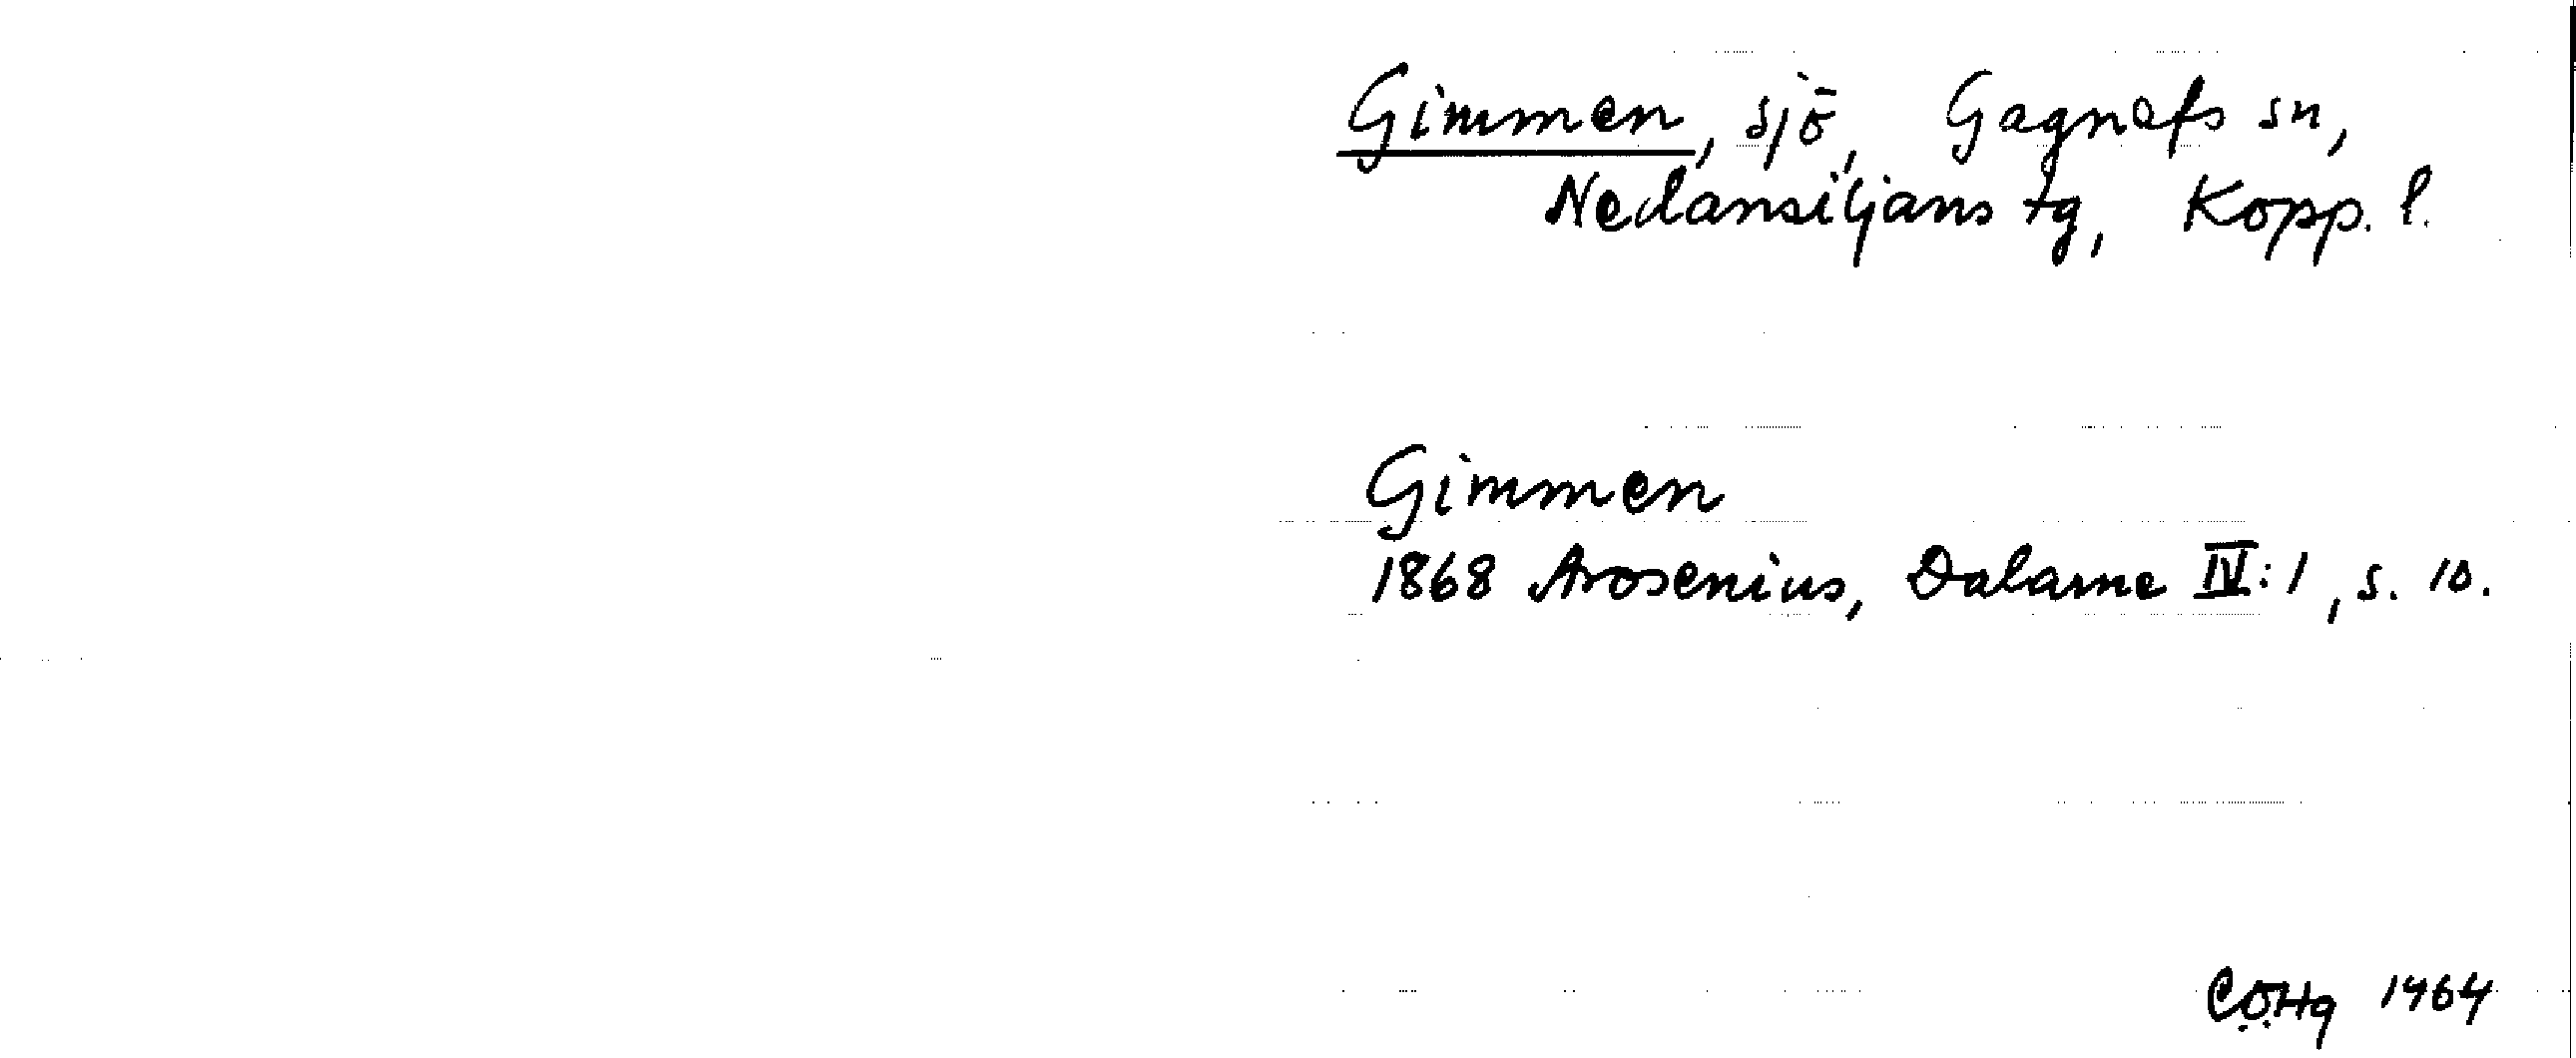 Gimmen, sjö, Gagnefs sn,
Nedansiljans tg, Kopp. l.
Gimmen
1868 Arosenius, Dalarne IV:1, s. 10.
CÖHg 1964